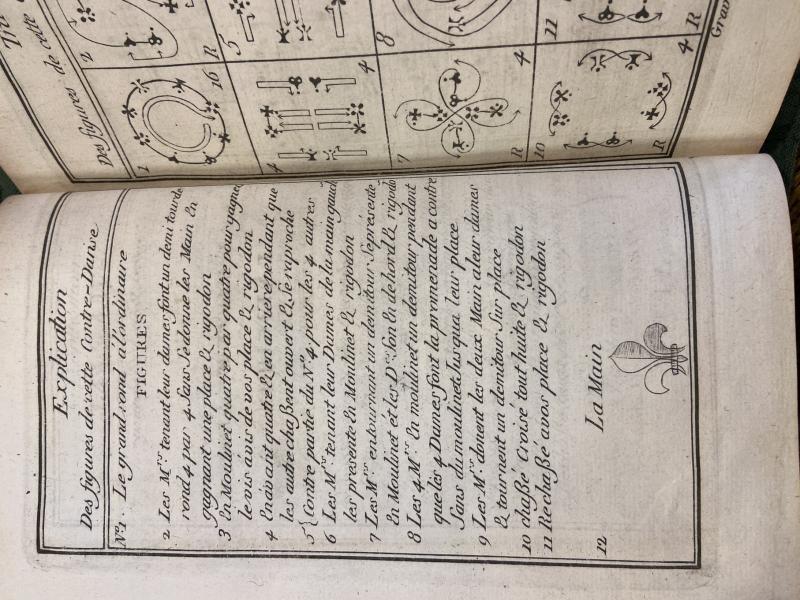 Explication
Des figures de cette Contre-Danse
No. 1. Le grand rond a l'ordinaire
FIGURES
2 Les Mrs tenant leur dames font un demi tour de
rond 4 par 4 Sans Se donne les Main En
gagnant une place & rigodon
3 En Moulinet quatre par quatre pour gagner
le vis avis de vos place & rigodon
4 En avant quatre & en arriere pendant que
les autre chaßent ouvert & Se raproche
5 Contre partie du No. 4. pour les 4 autres
6 Les Mrs tenant leur Dames de la main gauch
les presente En Moulinet & rigodon
7 Les Mrs entournant un demitour Se présente
En Moulinet et les Des Son En dehord & rigodo
8 Les 4 Mrs En moulinet un demitour pendant
que les 4 Dames font la promenade a contre
Sans du moulinet Jusqua leur place
9 Les Mrs donent les deux Main a leur dames
& tournent un demitour Sur place
10 chaßé Croisé tout huite & rigodon
11 Rechaßé a vos place & rigodon
12 La Main
Des figures de cette
1
16
R
4
4
7
4
R
10
4
R
2
R
5
8
11
R